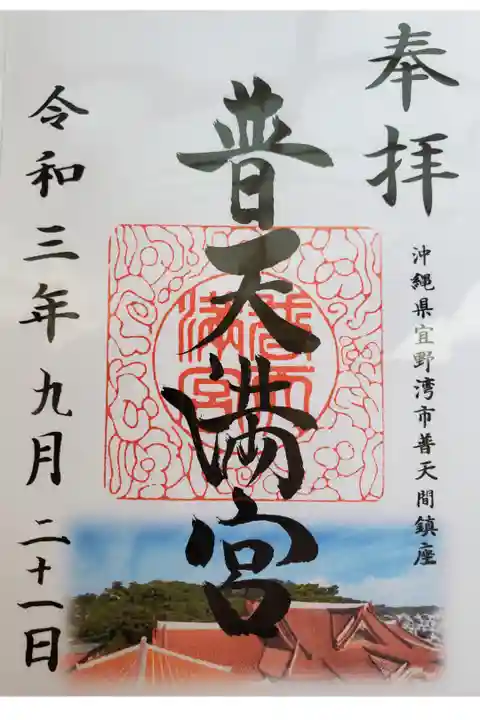 奉拝
沖縄県宜野湾市普天間鎮座
普天満宮
普天
満宮
令和三年九月二十一日